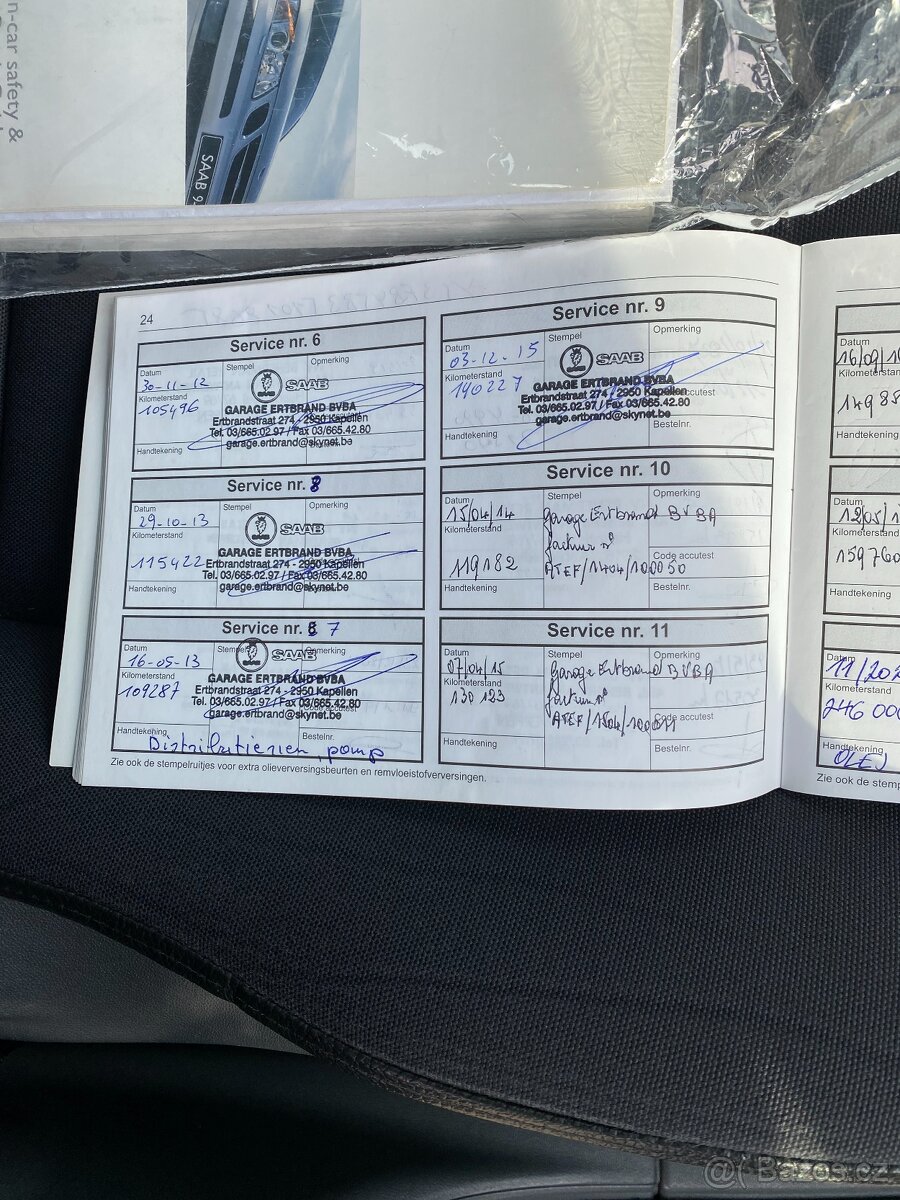 n-car safety &
SAAB 9
24
Service nr. 6
Datum
30-11-12
Stempel
Opmerking
SAAB
Kilometerstand
105496
GARAGE ERTBRAND BVBA
Ertbrandstraat 274 - 2950 Kapellen
Tel. 03/665.02.97 / Fax 03/665.42.80
garage.ertbrand@skynet.be
Handtekening
Service nr. 8
Datum
29-10-13
Stempel
Opmerking
SAAB
Kilometerstand
115422
GARAGE ERTBRAND BVBA
Ertbrandstraat 274 - 2950 Kapellen
Tel. 03/665.02.97 / Fax 03/665.42.80
garage.ertbrand@skynet.be
Handtekening
Service nr. 7
Datum
16-05-13
Stempel
Opmerking
SAAB
Kilometerstand
109287
GARAGE ERTBRAND BVBA
Ertbrandstraat 274 - 2950 Kapellen
Tel. 03/665.02.97 / Fax 03/665.42.80
Code accutest
garage.ertbrand@skynet.be
Handtekening
Distributieriem, pomp
Zie ook de stempelruitjes voor extra olieverversingsbeurten en remvloeistofverversingen.
Service nr. 9
Datum
03-12-15
Stempel
Opmerking
SAAB
Kilometerstand
140227
GARAGE ERTBRAND BVBA
Ertbrandstraat 274 / 2950 Kapellen
Tel. 03/665.02.97 / Fax 03/665.42.80
garage.ertbrand@skynet.be
Bestelnr.
Handtekening
Service nr. 10
Datum
15/04/14
Stempel
Opmerking
Garage Ertbrand BVBA
Kilometerstand
119182
factuur n°
Code accutest
ATEF/1404/100050
Handtekening
Bestelnr.
Service nr. 11
Datum
07/04/15
Stempel
Opmerking
Garage Ertbrand BVBA
Kilometerstand
130123
factuur n°
Code accutest
Handtekening
Bestelnr.
Datum
16/09/1
Kilometerstand
1498
Handtekening
Datum
12/05/1
Kilometerstand
159760
Handtekening
Datum
11/202
Kilometerstand
246 000
Handtekening
OLEJ
Zie ook de stemp
@ Bazos.cz